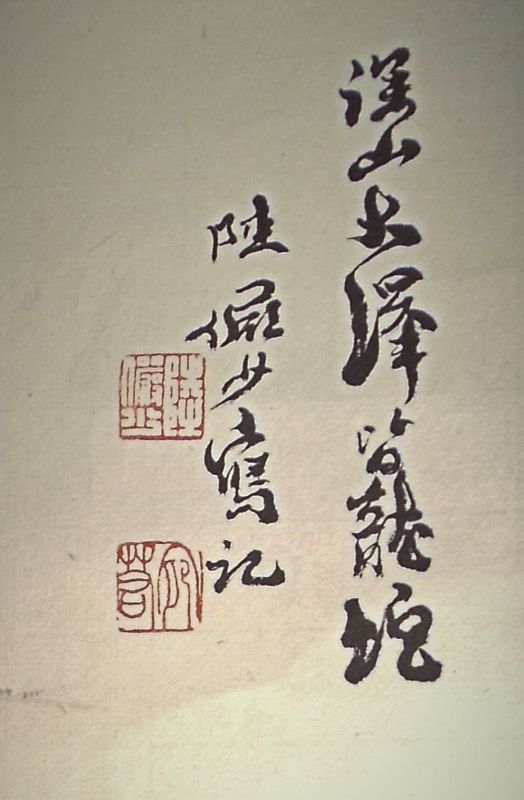 深山大澤皆龍蛇
陸儼少寫記
陸儼少
宛若